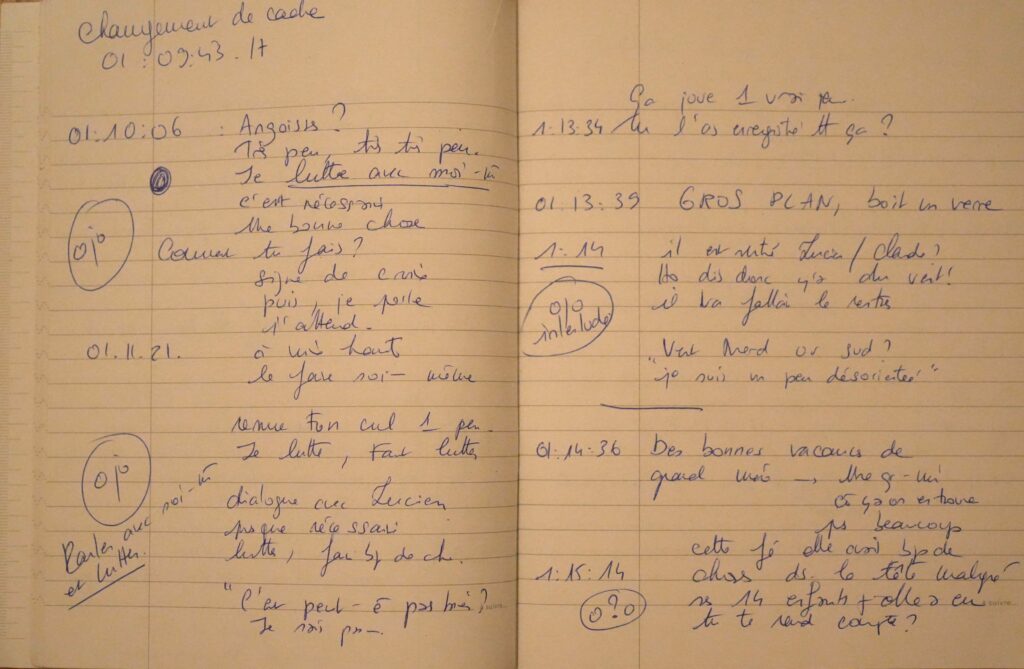 Changement de cadre
01:09:43.17
01:10:06 : Angoisses ?
Très peu, très très peu.
Je lutte avec moi-m
c'est nécessaire
Une bonne chose
ojo
Comment tu fais ?
signe de croix
puis, je parle
j'attend.
01.11.21. à voix haute
le faire soi-même
remue ton cul 1 peu.
Je lutte, faut lutter
ojo
Parler avec soi-m
et lutter.
dialogue avec Lucien
presque nécessaire
lutte, bp de
"C'est peut-ê pas bien ?
Je sais pas
suivre...
Ça joue 1 vrai
1.13:34 tu l'as enregistré tt ça ?
01.13:39 GROS PLAN, boit un verre
1:14 il est Lucien/Claude ?
dis donc y'a du vent !
il va falloir le rentrer
ojo
interlude
"Vent Nord ou sud ?
je suis un peu désorientée"
01:14:36 Des bonnes vacances de
grand mère → Une ge-mè
cô ça on en trouve
ps beaucoup
cette fe elle avait bp de
1:15:14 choses ds. la tête malgré
o?o
ses 14 enfants + elle a eu
suivre...
tu te rend compte ?